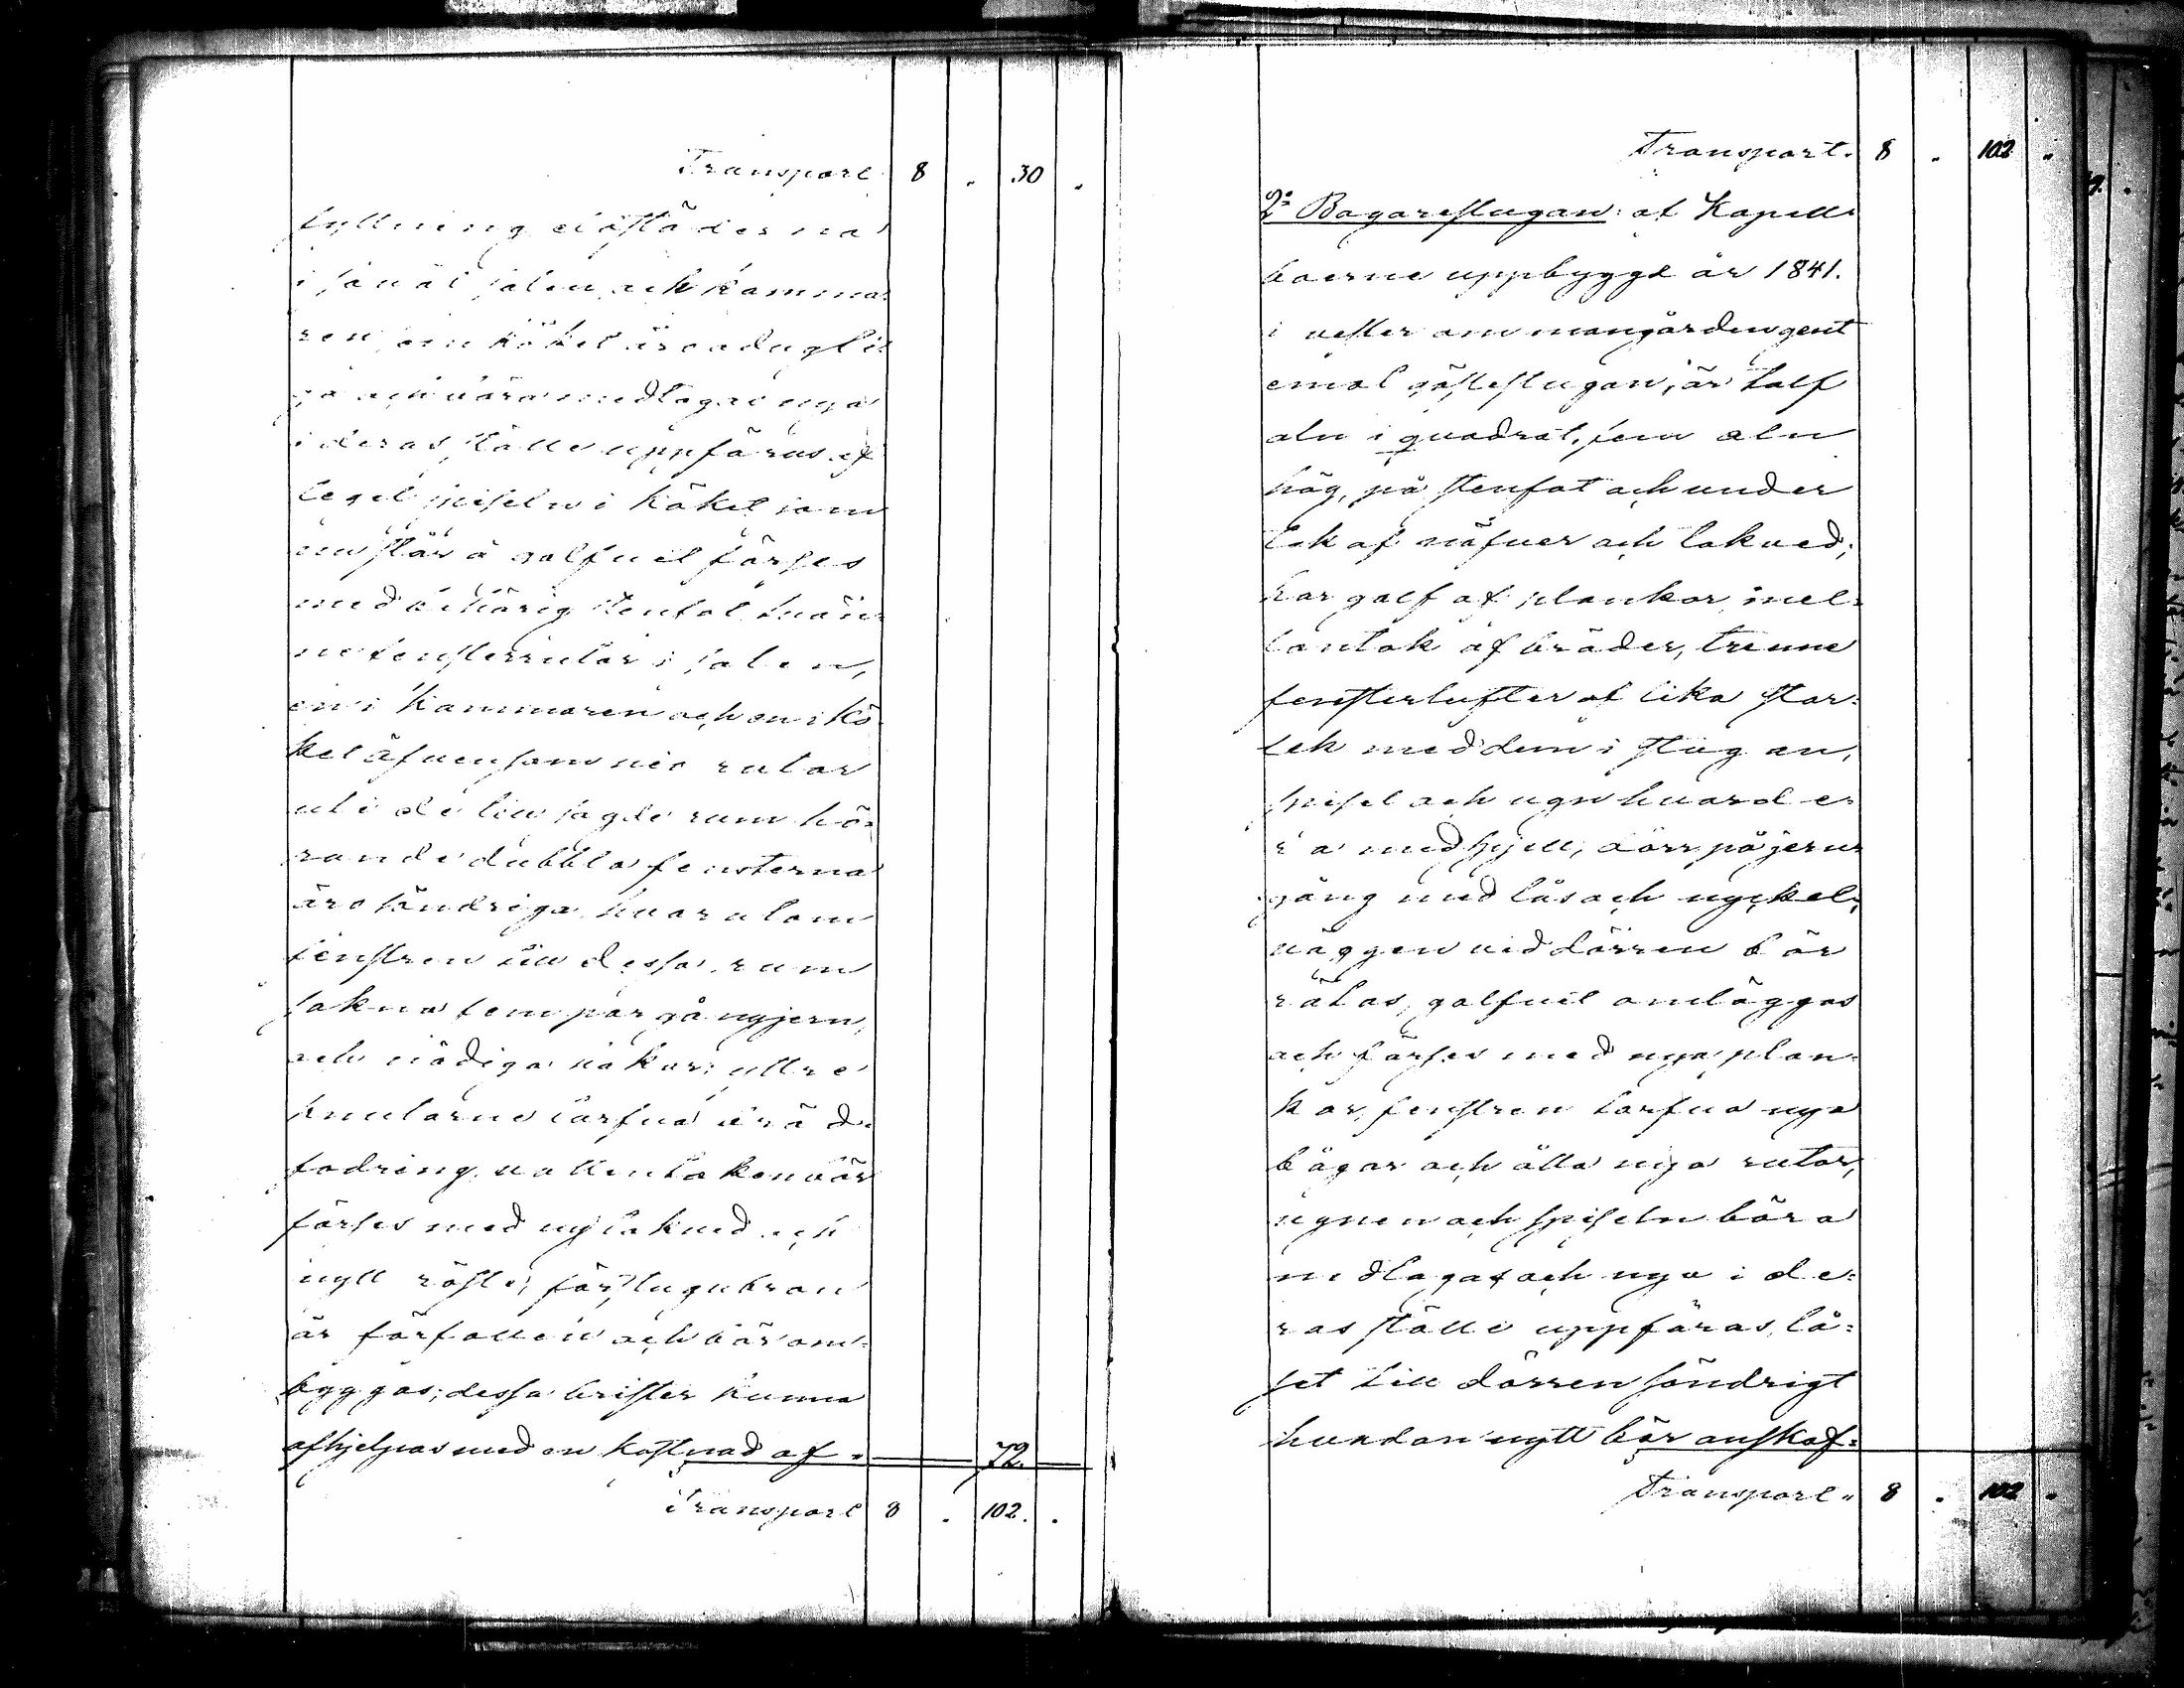 Transport 8 . 30 .
fyllning eldstäderna
i såväl salen och kamma-
ren som köket äro odugli-
ga och böra nedtagas nya
i deras ställe uppföras af
tegel spiseln i köket som
nu står å golfvet förses
med behörig stenfot tvän-
ne fensterrutor i salen,
en i kammaren och en i kö-
ket äfvensom nio rutor
uti de till sagde rum hö-
rande dubbla fensterna
äro söndriga hvarutom
fenstren till dessa rum
sakna fem par gångjern,
och nödiga hakar; yttre
knutarne tarfva bräd-
fodring vattentaken bör
förses med ny takved och
nytt röste; förstugubron
är förfallen och bör om-
byggas; dessa brister kunna
afhjelpas med en kostnad af 72.
Transport 8 . 102. .
Transport. 8 . 102 .
2:o Bagarestugan: af Kapell-
boerne uppbygd år 1841.
i vester om mangården gent
emot gästestugan, är tolf
aln i quadrat, fem aln
hög, på stenfot och under
tak af näfver och takved;
har golf af plankor, mel-
lantak af bräder, trenne
fensterlufter af lika stor-
lek med dem i stugan,
spisel och ugn hvardera
med spjell, dörr på jern-
gång med lås och nyckel;
väggen vid dörren bör
rätas, golfvet omläggas
och förses med nya plan-
kor, fenstren tarfva nya
bågar och åtta nya rutor,
ugnen och spiseln böra
nedtagas och nya i de-
ras ställe uppföras, lå-
set till dörren söndrigt
hvadan nytt bör anskaf-
Transport 8 . 102 .